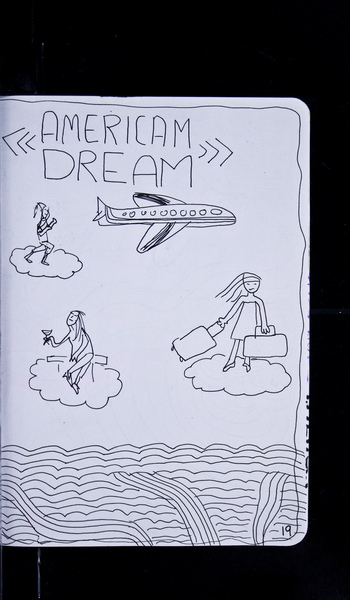 «« AMERICAM
DREAM »»
19